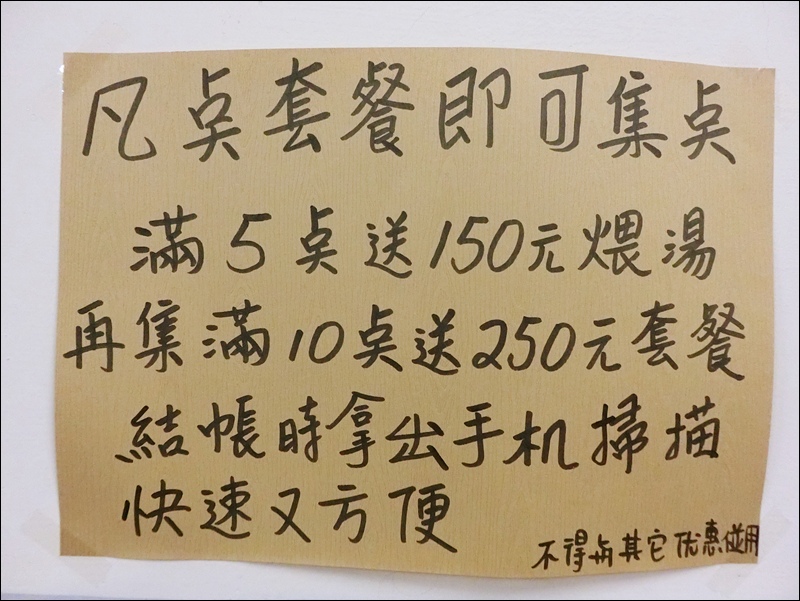 凡点套餐即可集点
滿5点送150元煨湯
再集滿10点送250元套餐
結帳時拿出手机掃描
快速又方便
不得与其它优惠並用